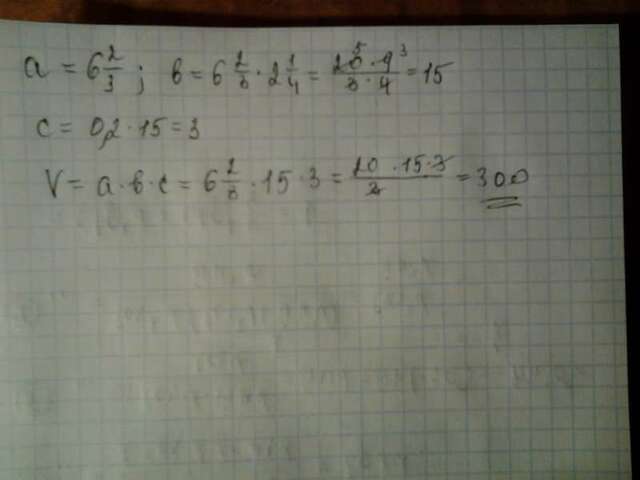 a = 6 2/3 ; b = 6 2/3 · 2 1/4 = 20 5 · 9 3 / 3 · 4 = 15
c = 0,2 · 15 = 3
V = a · b · c = 6 2/3 · 15 · 3 = 20 · 15 · 3 / 3 = 300